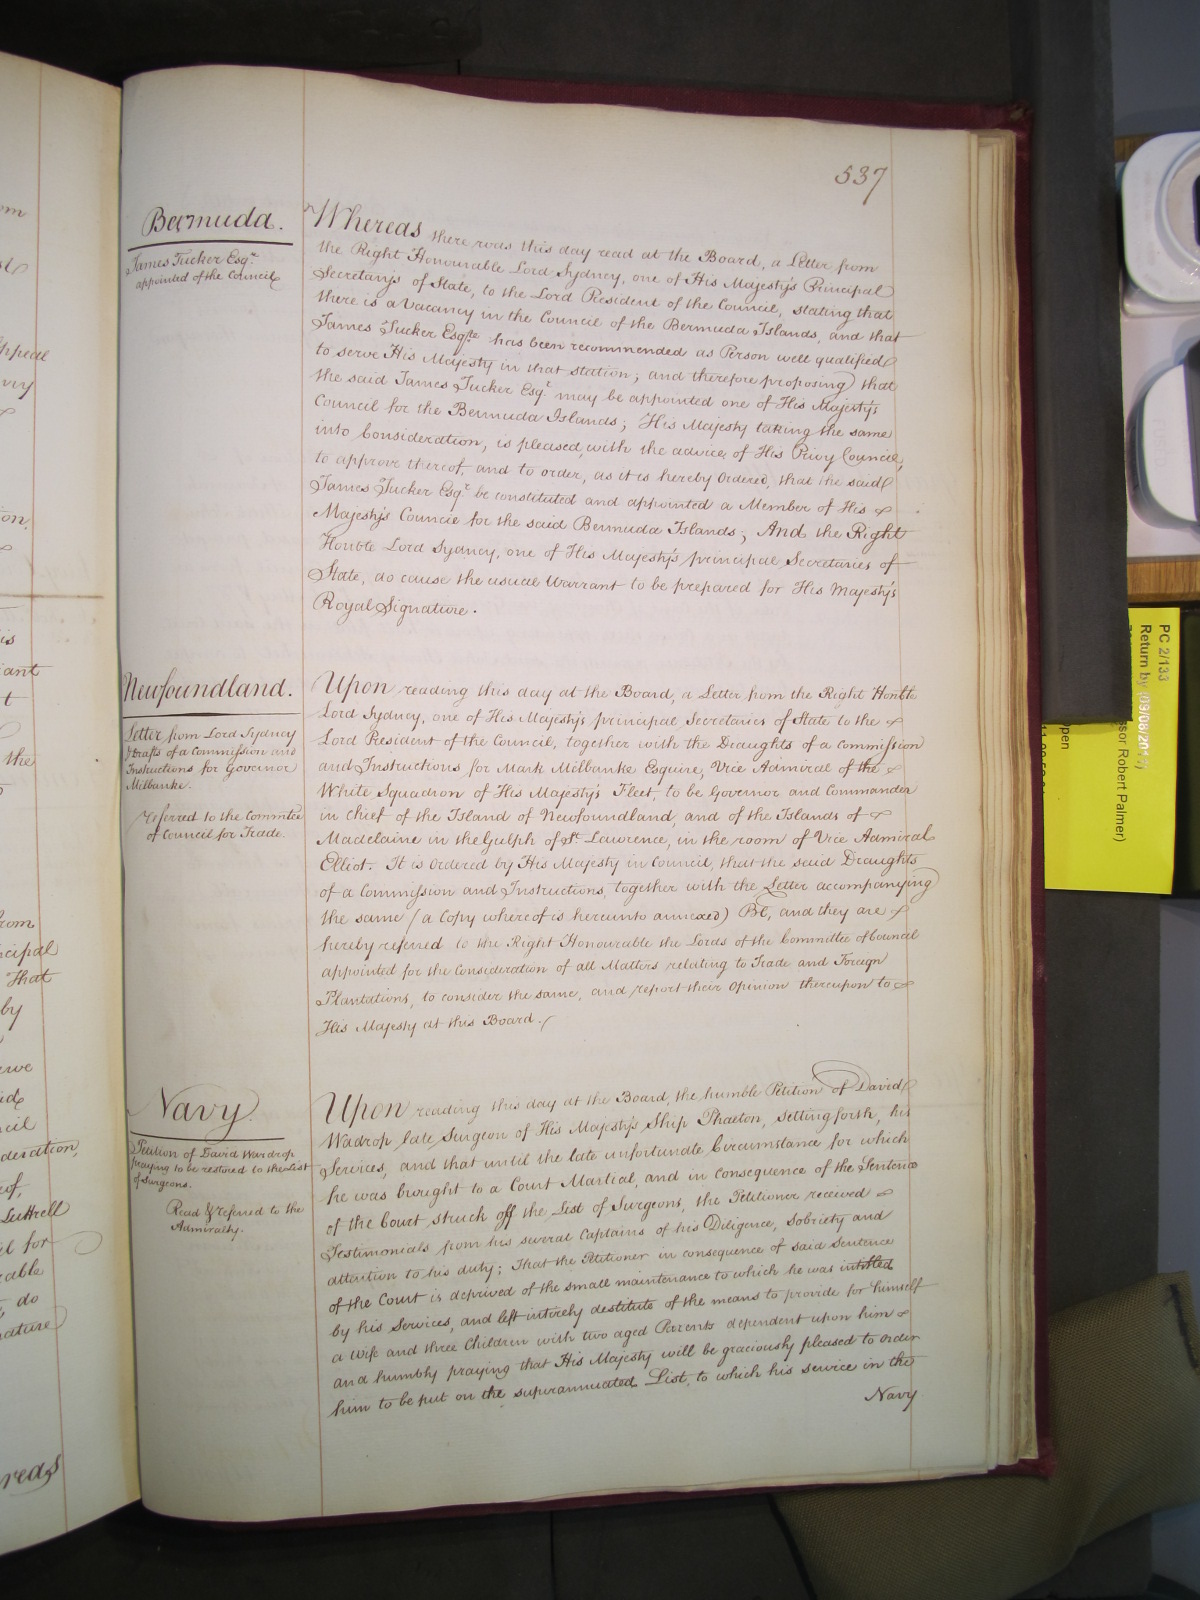 537
Bermuda.
James Tucker Esqr.
appointed of the Council
Whereas there was this day read at the Board, a Letter from
the Right Honourable Lord Sydney, one of His Majesty's Principal
Secretarys of State, to the Lord President of the Council, stating that
there is a Vacancy in the Council of the Bermuda Islands, and that
James Tucker Esqre. has been recommended as Person well qualified
to serve His Majesty in that station; and therefore proposing that
the said James Tucker Esqr. may be appointed one of His Majesty's
Council for the Bermuda Islands; His Majesty taking the same
into Consideration, is pleased, with the advice of His Privy Council,
to approve thereof, and to order, as it is hereby Ordered, that the said
James Tucker Esqr. be constituted and appointed a Member of His
Majesty's Council for the said Bermuda Islands; And the Right
Honble Lord Sydney, one of His Majesty's principal Secretaries of
State, do cause the usual Warrant to be prepared for His Majesty's
Royal Signature.
Newfoundland.
Letter from Lord Sydney
& drafts of a Commission and
Instructions for Governor
Milbanke.
referred to the Commtee
of Council for Trade.
Upon reading this day at the Board, a Letter from the Right Honble
Lord Sydney, one of His Majesty's principal Secretaries of State to the
Lord President of the Council, together with the Draughts of a Commission
and Instructions for Mark Milbanke Esquire, Vice Admiral of the
White Squadron of His Majesty's Fleet, to be Governor and Commander
in chief of the Island of Newfoundland, and of the Islands of
Madelaine in the Gulph of St. Lawrence, in the room of Vice Admiral
Elliot. It is Ordered by His Majesty in Council, that the said Draughts
of a Commission and Instructions, together with the Letter accompanying
the same (a Copy whereof is hereunto annexed) Be, and they are
hereby referred to the Right Honourable the Lords of the Committee of Council
appointed for the Consideration of all Matters relating to Trade and Foreign
Plantations, to consider the same, and report their Opinion thereupon to
His Majesty at this Board.
Navy
Petition of David Wardrop
praying to be restored to the List
of Surgeons.
Read & referred to the
Admiralty.
Upon reading this day at the Board, the humble Petition of David
Wadrop late Surgeon of His Majesty's Ship Phaeton, setting forth, his
Services, and that until the late unfortunate Circumstance for which
he was brought to a Court Martial, and in consequence of the Sentence
of the Court struck off the List of Surgeons, the Petitioner received
Testimonials from his several Captains of his Diligence, Sobriety and
attention to his duty; That the Petitioner in consequence of said Sentence
of the Court is deprived of the small maintenance to which he was intitled
by his Services, and left intirely destitute of the means to provide for himself
a Wife and three Children with two aged Parents dependent upon him
and humbly praying that His Majesty will be graciously pleased to order
him to be put on the superannuated List, to which his service in the
Navy
Appeal
ion,
is
t
the
from
That
by
deration,
of,
Luttrell
il for
, do
nature
reas
PC 2/133
Return by (09/08/2017)
sor Robert Palmer)
pen